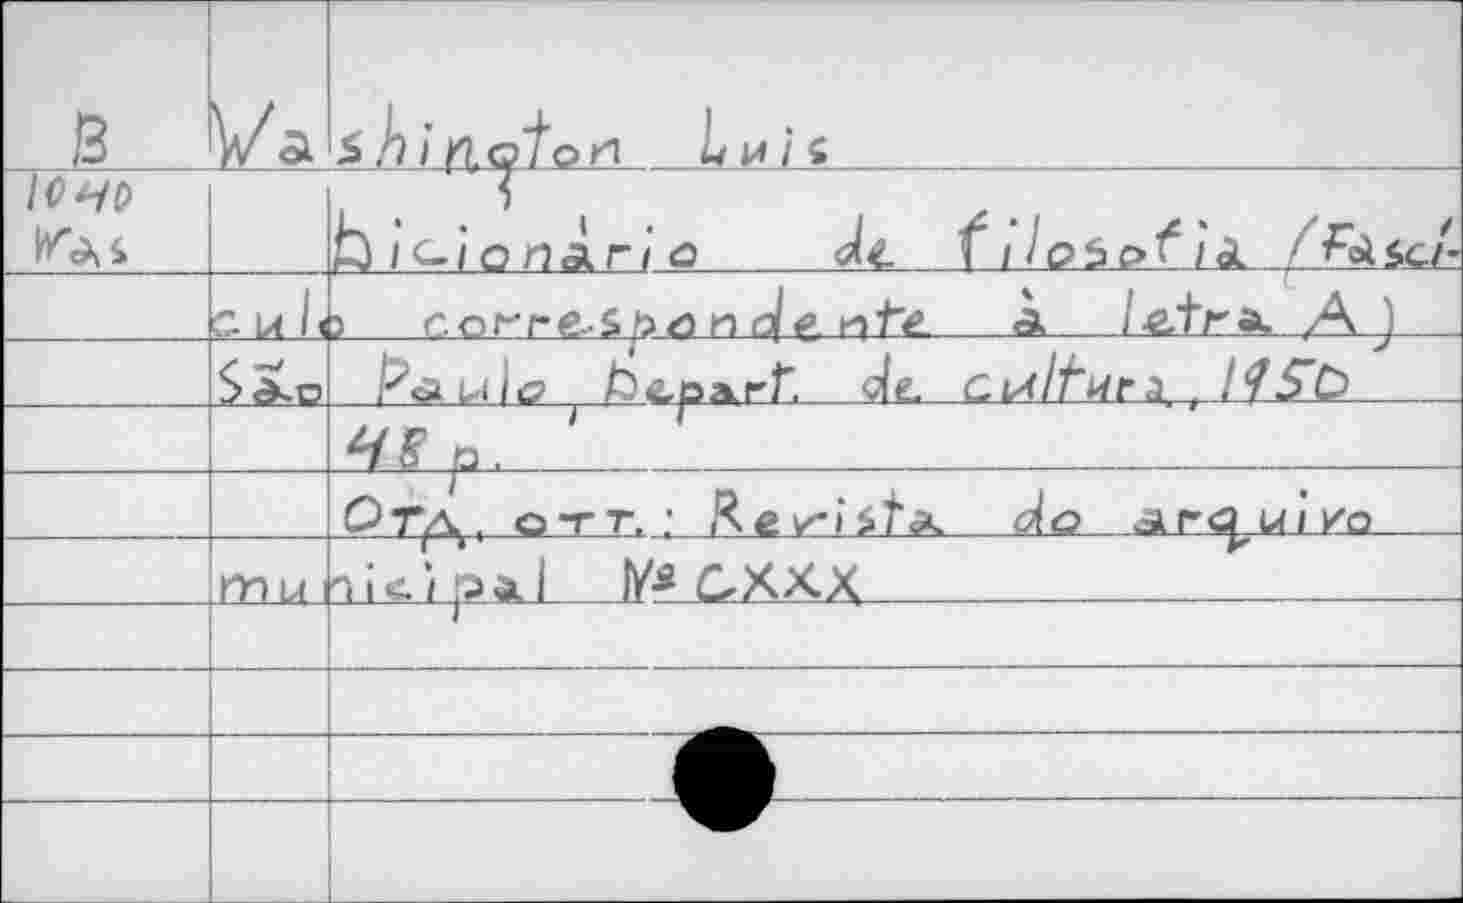 B Washington Luis
1040
Was Dicionário de filosofia (Fascí-
culo correspondente à letra A)
São Paulo, Depart. de cultura, 1950
48 p.
Отд. отт.: Revista do arquivo
municipal Nº CXXX